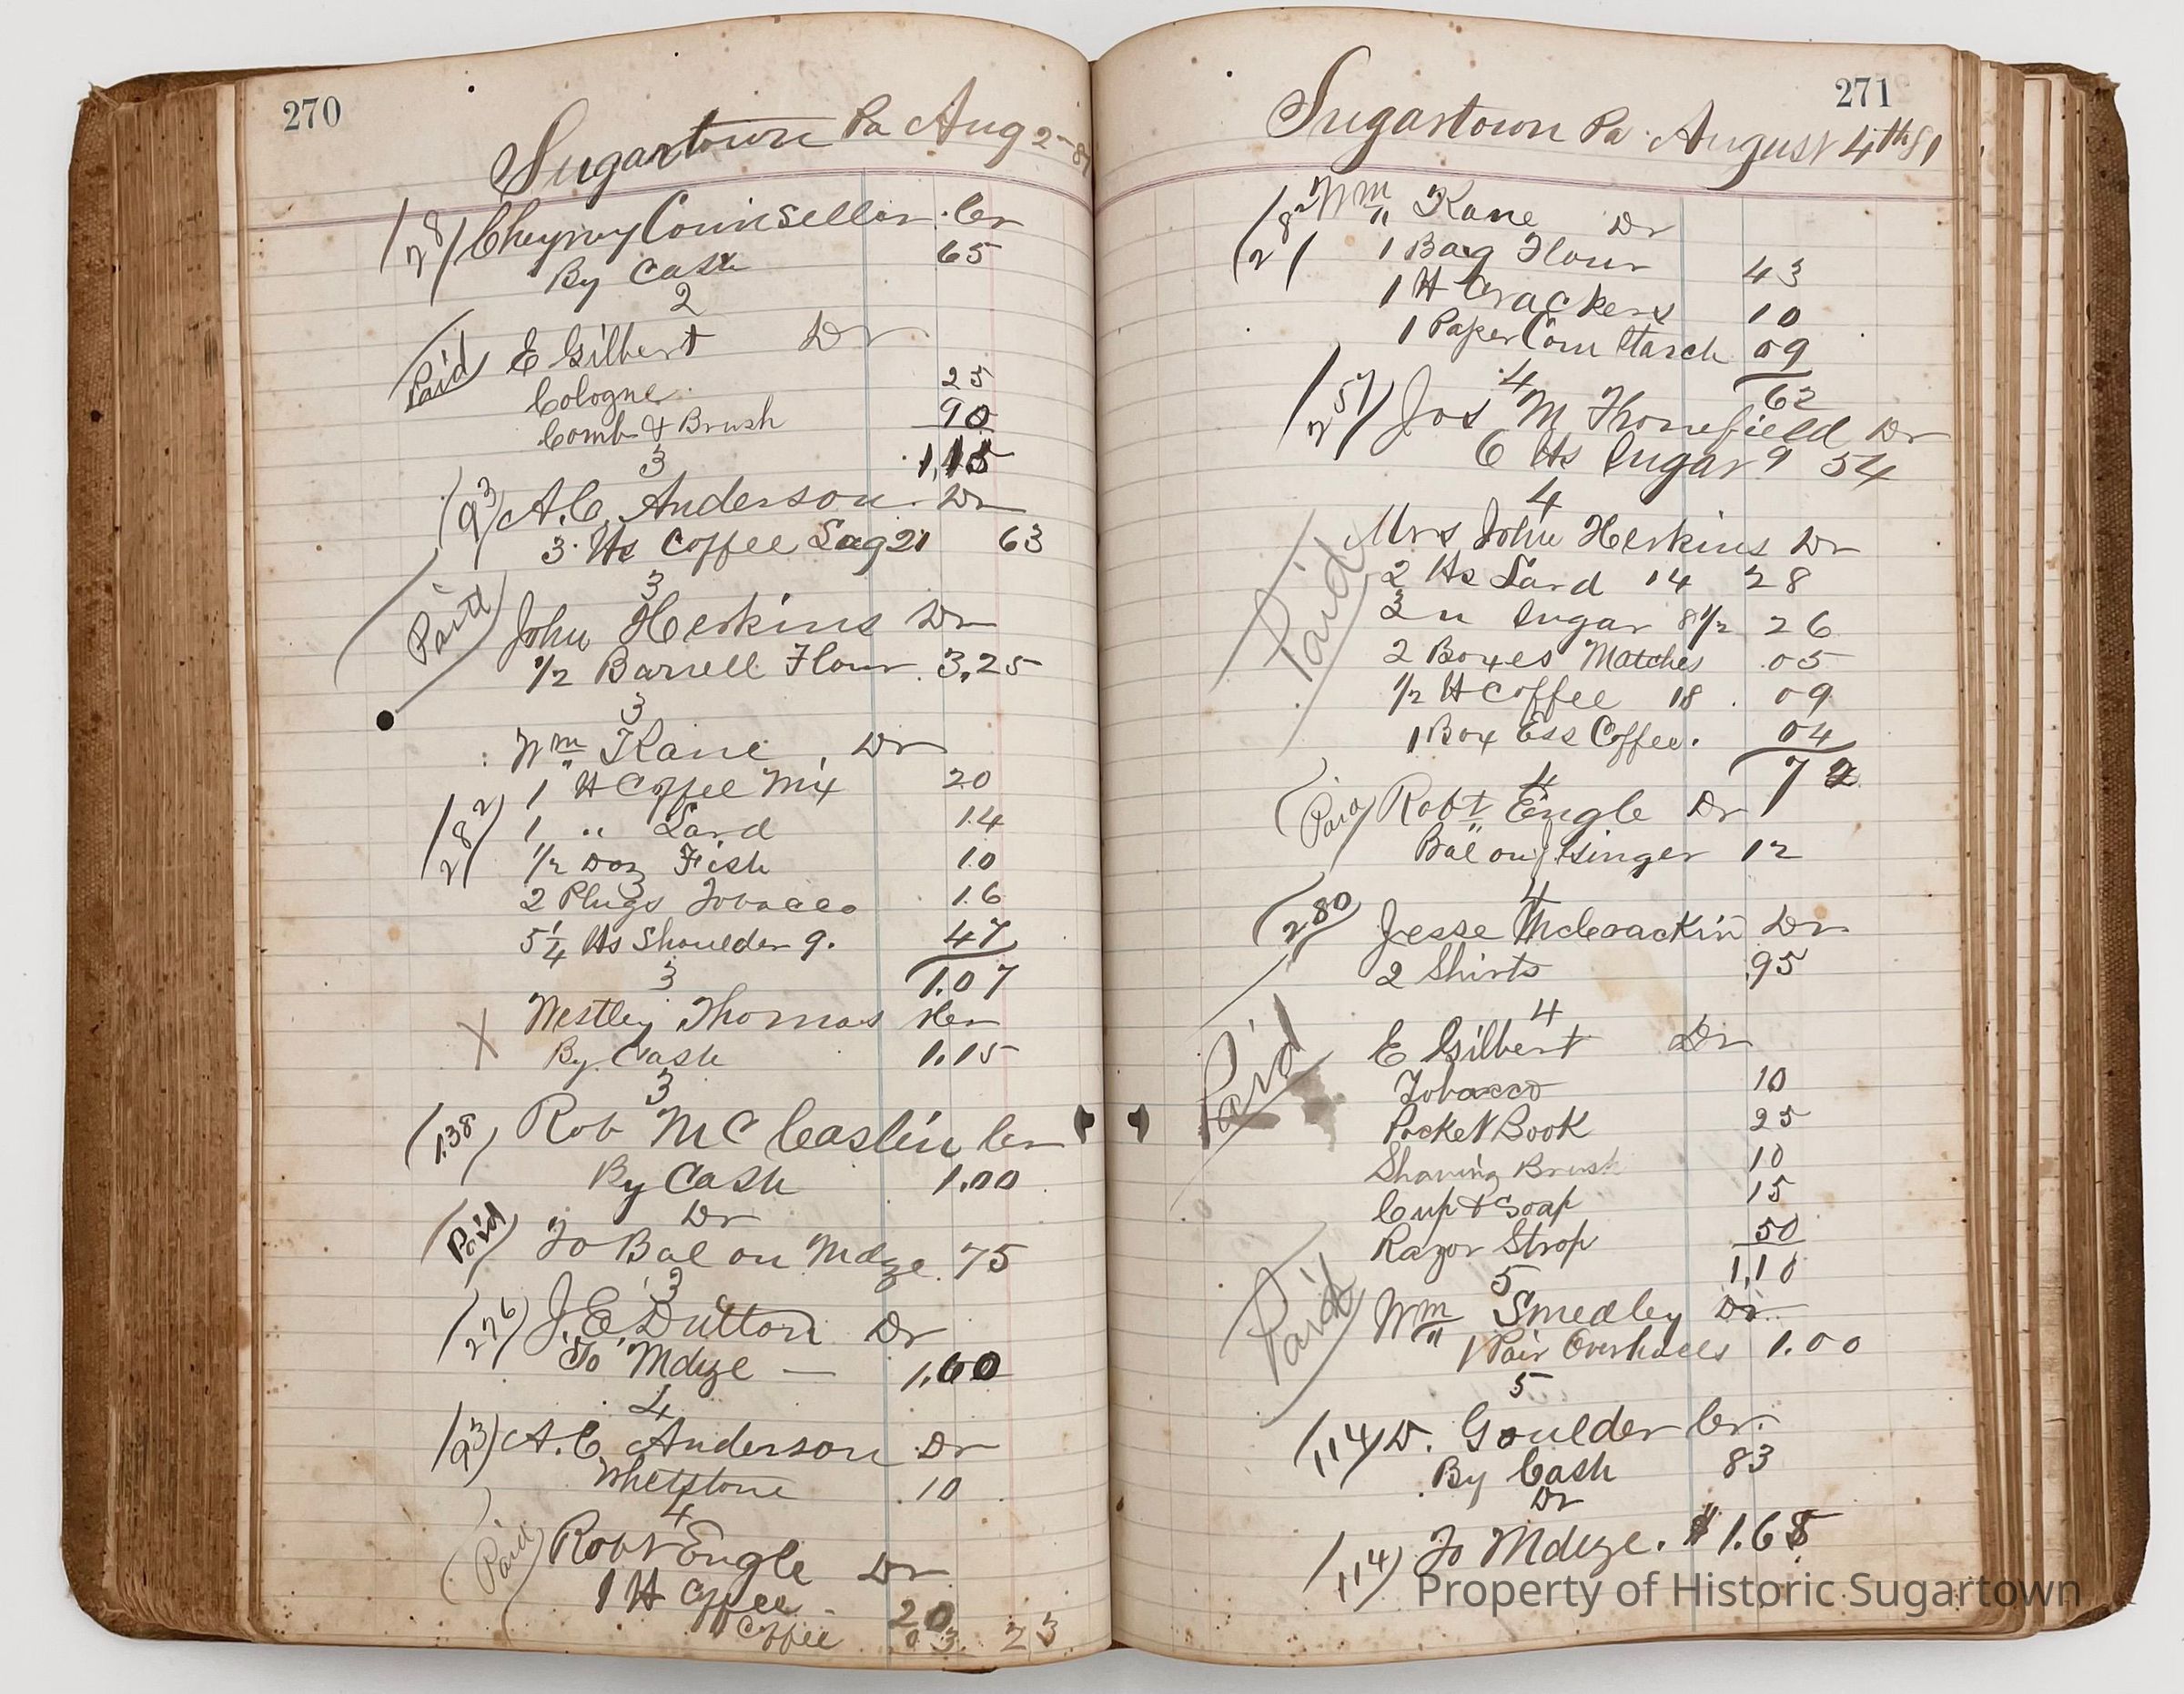 270
Sugartown Pa Aug 2-81
(28) Cheyney Counsellor Cr
By Cash 65
2
Paid E Gilbert Dr
Cologne 25
Comb & Brush 90
1,15
3
(93) A.C. Anderson Dr
3 lbs Coffee Lag 21 63
3
Paid John Herkins Dr
1/2 Barrell Flour 3,25
3
Wm Kane Dr
1 lb Coffee Mix 20
(282) 1 " Lard 14
1/2 Doz Fish 10
2 Plugs Tobacco 16
5 1/4 lbs Shoulder 9. 47
1.07
3
X Westley Thomas Cr
By Cash 1.15
3
(138) Rob McCaslin Cr
By Cash 1.00
Dr
Paid To Bal on Mdze 75
3
(276) J.E. Dutton Dr
To Mdze — 1.60
4
(93) A.C. Anderson Dr
Whetstone 10
4
Paid Robt Engle Dr
1 lb Coffee 20
Coffee 03 23
271
Sugartown Pa August 4th 81
(282) Wm Kane Dr
1 Bag Flour 43
1 lb Crackers 10
1 Paper Corn Starch 09
62
4
(257) Jos M Thomefield Dr
6 lbs Sugar 9 54
4
Paid Mrs John Herkins Dr
2 lbs Lard 14 28
3 " Sugar 8 1/2 26
2 Boxes Matches 05
1/2 lb Coffee 18 09
1 Box Ess Coffee. 04
72
4
Paid Robt Engle Dr
Bal on Ginger 12
4
(280) Jesse McCrackin Dr
2 Shirts .95
4
Paid E Gilbert Dr
Tobacco 10
Pocket Book 25
Shaving Brush 10
Cup & Soap 15
Razor Strop 50
1,10
5
Paid Wm Smedley Dr
1 Pair Overhalls 1.00
5
(114) D. Goulder Cr.
By Cash 83
Dr
(114) To Mdze. $1.65
Property of Historic Sugartown